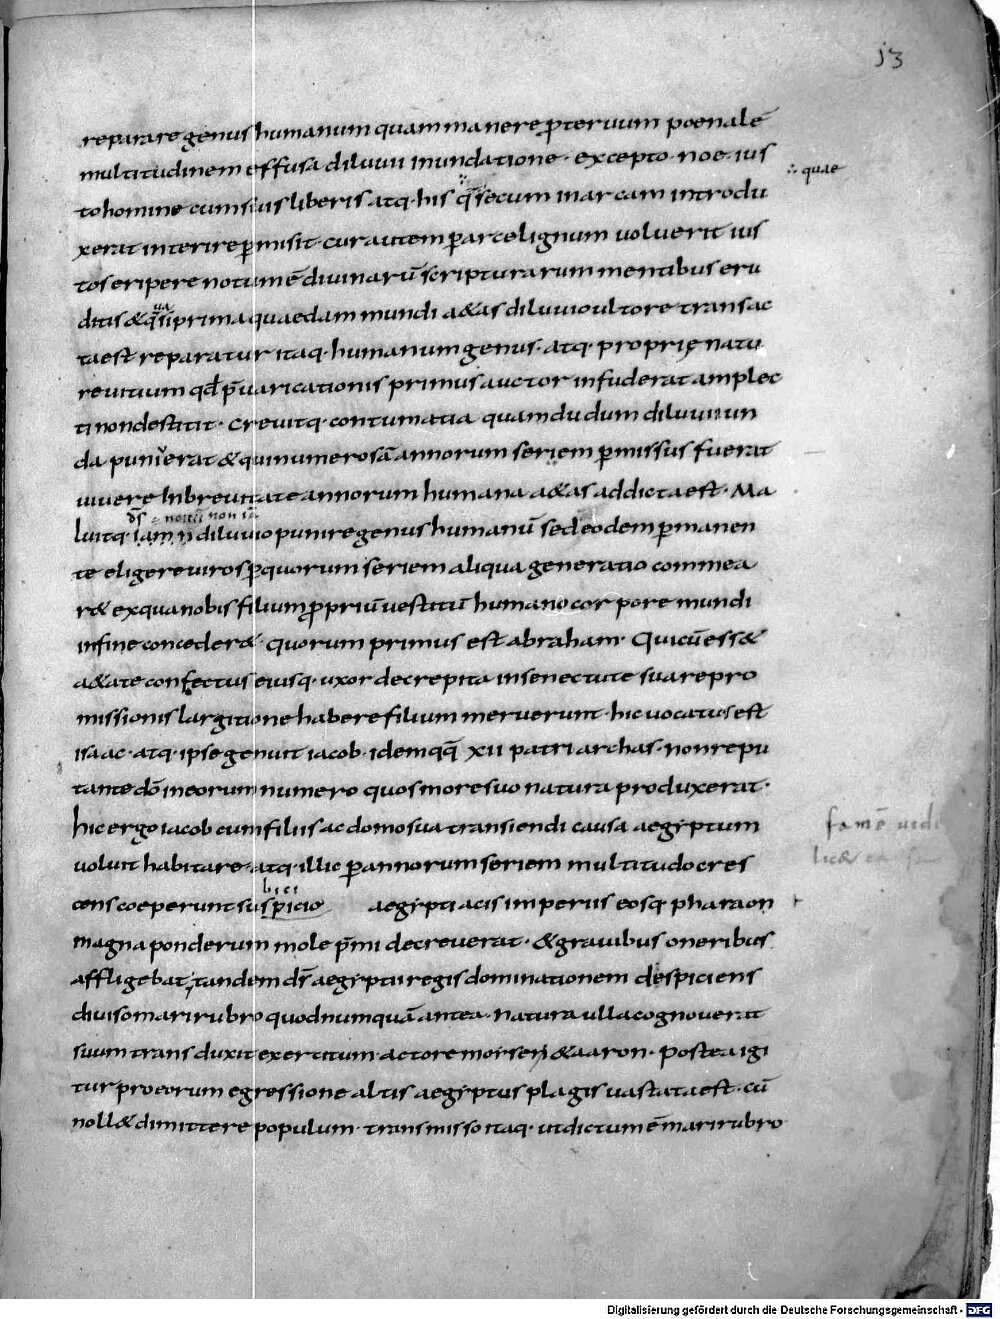 13
reparare genus humanum quam manere p̱teruum poenale
multitudinem effusa diluuii inundatione· excepto· noe· ius
∴ quae
to homine cum suis liberis atq· his q̄ secum in arcam introdu
xerat interire p̱misit· cur autem p̱ arcę lignum uoluerit ius
tos eripere notum ē diuinarū scripturarum mentibus eru
ua
ditis & q̄si prima quaedam mundi a&as diluuio ultore transac
ta est reparatur itaq· humanum genus· atq· proprię natu
re uitium qđ p̄uaricationis primus auctor infuderat amplec
ti non destitit· Creuitq· contumatia quam dudum diluuii un
da punierat & qui numerosā annorum seriem p̱missus fuerat
uiuere In breuitate annorum humana a&as addicta est· Ma
luitq· iam n̄ diluuio punire genus humanū sed eodem p̱manen
te eligere uiros p̱ quorum seriem aliqua generatio commea
r& ex qua nobis filium p̱priū uestitū humano corpore mundi
in fine conceder&· quorum primus est abraham· Qui cū ess&
a&ate confectus eiusq· uxor decrepita in senectute sua repro
missionis largitione habere filium meruerunt· hic uocatus est
isaac· atq· ipse genuit iacob· idemqq̄ xii patriarchas· non repu
tante dō in eorum numero quos more suo natura produxerat·
hic ergo iacob cum filiis ac domo sua transiendi causa aegyptum
famē uidi
uoluit habitare· atq· illic p̱ annorum seriem multitudo cres
bici
cens coeperunt suspicio aegyptiacis imperiis eosq· pharaon
magna ponderum mole p̄mi decreuerat· & grauibus oneribus
affligebat, tandem d̄s aegyptii regis dominationem despiciens
diuiso mari rubro quod numquā antea· natura ulla cognouerat
suum transduxit exercitum· actore moysen & aaron· Postea igi
tur pro eorum egressione altis aegyptus plagis uastata est· cū
noll& dimittere populum· transmisso itaq· ut dictum ē mari rubro
Digitalisierung gefördert durch die Deutsche Forschungsgemeinschaft - DFG